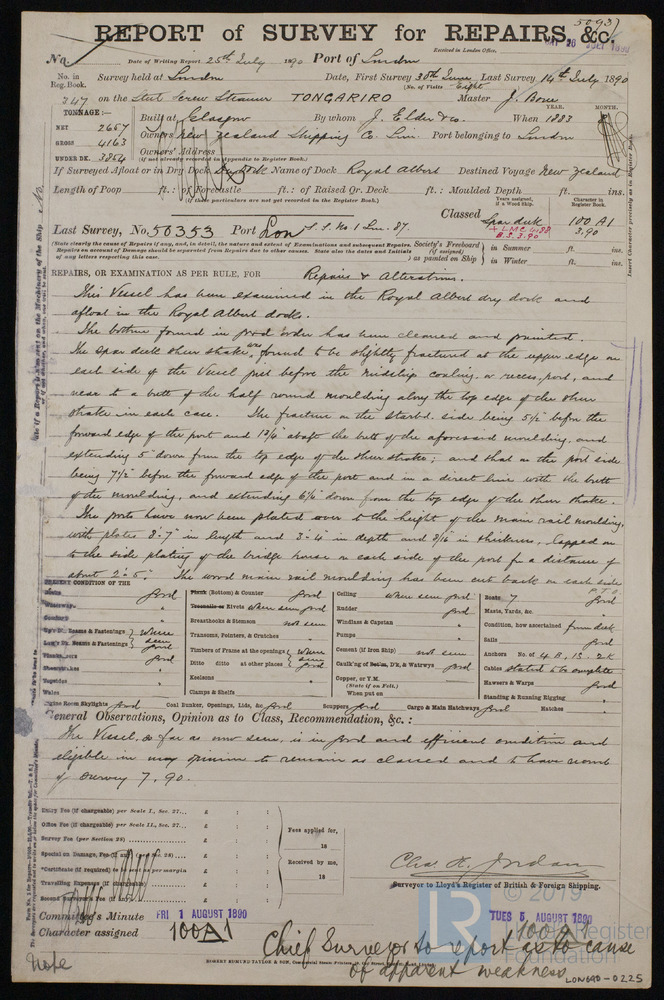 50937
REPORT of SURVEY for REPAIRS, &c.
Received in London Office,
No. Date of Writing Report 25th July 1890 Port of London
No. in Reg. Book. Survey held at London Date, First Survey 30th June Last Survey 14th July 1890
(No. of Visits Eight)
247 on the Steel Screw Steamer TONGARIRO Master J. Bone
TONNAGE:—
YEAR. MONTH.
NET 2667 Built at Glasgow By whom J. Elder & Co. When 1883
GROSS 4163 Owners New Zealand Shipping Co. Lim. Port belonging to London
UNDER DK. 3864 Owners' Address
(if not already recorded in Appendix to Register Book.)
If Surveyed Afloat or in Dry Dock Dry Dk Name of Dock Royal Albert Destined Voyage New Zealand
Length of Poop ft. : of Forecastle ft. : of Raised Qr. Deck ft. : Moulded Depth ft. ins.
(If these particulars are not yet recorded in the Register Book.)
Years assigned, if a Wood Ship. Character in Register Book.
Classed Spar deck 100 A1
Last Survey, No. 50353 Port Lon S.S. No 1 Lon. 87. + LMC 4.88 3.90
B.S. 3.90
(State clearly the cause of Repairs if any, and, in detail, the nature and extent of Examinations and subsequent Repairs.
Repairs on account of Damage should be separated from Repairs due to other causes. State also the dates and Initials
of any letters respecting this case.
Society's Freeboard (if assigned), as painted on Ship } in Summer ft. ins.
in Winter ft. ins.
REPAIRS, OR EXAMINATION AS PER RULE, FOR Repairs & Alterations.
This Vessel has been examined in the Royal Albert dry dock and
afloat in the Royal Albert docks.
The bottom found in good order has been cleaned and painted.
The spar deck sheer strake was found to be slightly fractured at the upper edge on
each side of the Vessel just before the midship coaling, or recess, port, and
near to a butt of the half round moulding along the top edge of the sheer
strake in each case. The fracture on the starbd. side being 5½" before the
forward edge of the port and 1⅜" abaft the butt of the aforesaid moulding, and
extending 5" down from the top edge of the sheer strake; and that on the port side
being 7½" before the forward edge of the port and in a direct line with the butt
of the moulding, and extending 6½" down from the top edge of the sheer strake.
The ports have now been plated over to the height of the main rail moulding,
with plates 3'.7" in length and 3'.4" in depth and in thickness, lapped on
to the side plating of the bridge house on each side of the port for a distance of
about 2'.5". The wood main rail moulding has been cut back on each side
P.T.O.
PRESENT CONDITION OF THE
Decks Good
Waterways
Comings
Upr Dk. Beams & Fastenings } where seen good
Lowr Dk. Beams & Fastenings
Planksheers Good
Sheerstrakes
Topsides
Wales
Plank (Bottom) & Counter Good
Treenails or Rivets where seen good
Breasthooks & Stemson not seen
Transoms, Pointers, & Crutches
Timbers of Frame at the openings } where seen good
Ditto ditto at other places
Keelsons
Clamps & Shelfs
Ceiling where seen good
Rudder Good
Windlass & Capstan
Pumps
Cement (if Iron Ship) not seen
Caulk'ng of Bottom, D'k, & Watrwys Good
Copper, or Y.M.
(State if on Felt.)
When put on
Boats 7 Good
Masts, Yards, &c. Good
Condition, how ascertained from deck
Sails Good
Anchors No. of 4 B, 1 S. 2 K
Cables stated to be complete
Hawsers & Warps Good
Standing & Running Rigging
Engine Room Skylights Good Coal Bunker, Openings, Lids, &c. Good Scuppers Good Cargo & Main Hatchways Good Hatches
General Observations, Opinion as to Class, Recommendation, &c. :
The Vessel, so far as now seen, is in good and efficient condition and
eligible in my opinion to remain as classed and to have record
of survey 7, 90.
Entry Fee (if chargeable) per Scale I., Sec. 27... £ : :
Office Fee (if chargeable) per Scale II., Sec. 27... £ : :
Survey Fee (per Section 28) £ : :
Special on Damage, Fee (if any) £ : :
*Certificate (if required) to be sent as per margin
Travelling Expenses (if chargeable) £ : :
Second Surveyor's Fee (if any) £ : :
Fees applied for,
18
Received by me,
18
Chas. H. Jordan
Surveyor to Lloyd's Register of British & Foreign Shipping.
Committee's Minute FRI 1 AUGUST 1890 TUES 5 AUGUST 1890
Character assigned 100A1 100A1
Chief Surveyor to report as to cause
of apparent weakness
LR
© 2019
Lloyd's Register
Foundation
LON690-0225